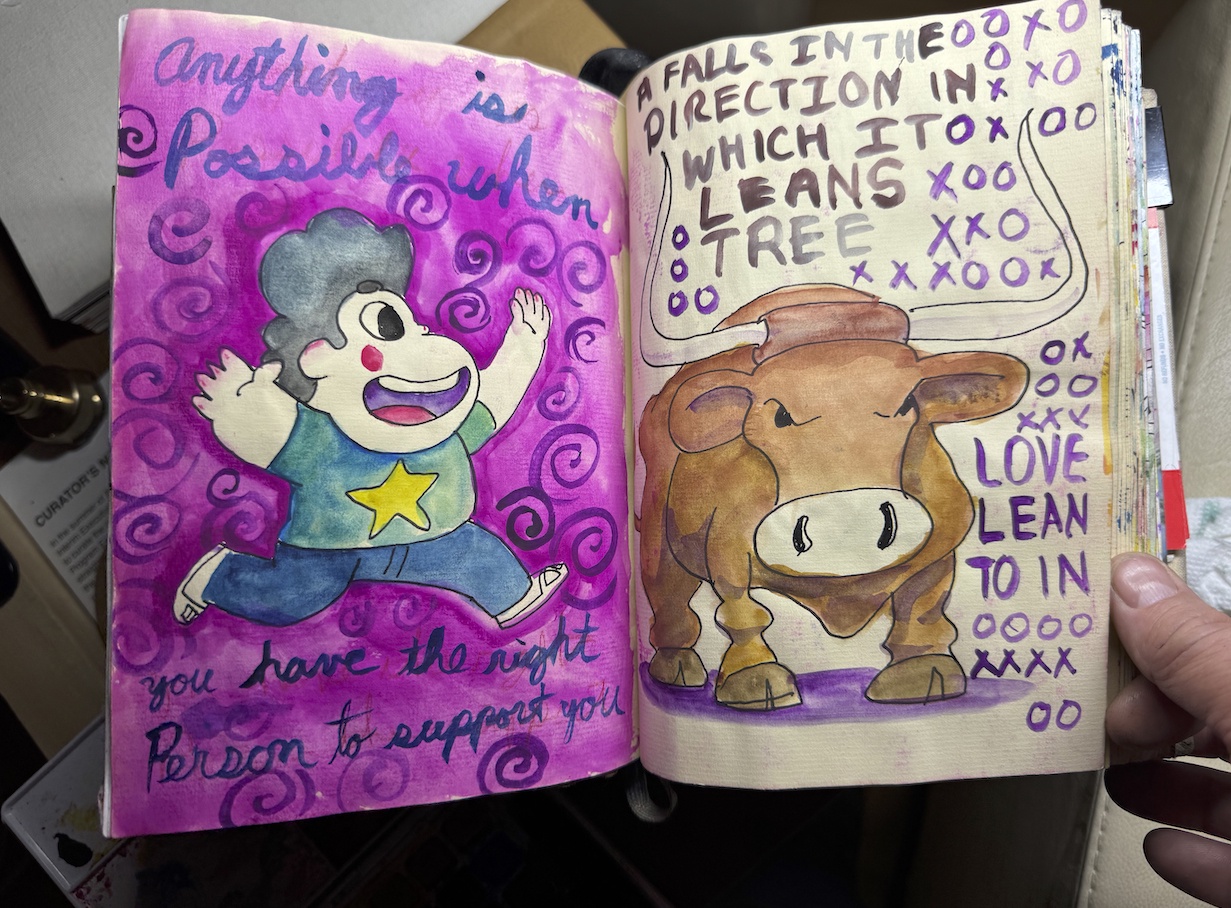 Anything is
Possible when
you have the right
Person to support you
A FALLS IN THE OOXO
O
DIRECTION IN X XO
WHICH IT OX OO
LEANS XOO
O TREE XXO
O XXXOOX
OO
OX
OO
XXX
LOVE
LEAN
TO IN
OOOO
XXXX
OO
CURATOR'S N